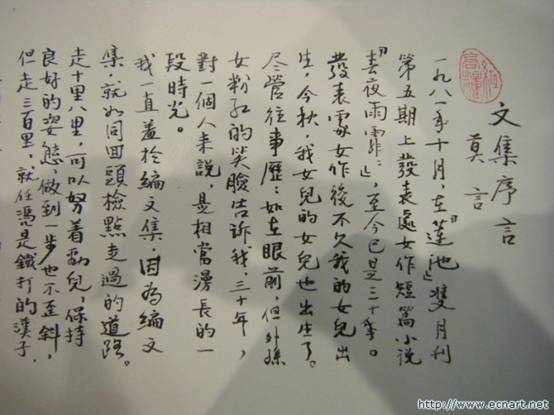 文集序言
莫言
一九八一年十月,在『蓮池』雙月刊
第五期上發表處女作短篇小说
『春夜雨霏霏』,至今已是三十年。
發表處女作後不久我的女兒出
生,今秋,我女兒的女兒也出生了。
尽管往事歷歷如在眼前,但外孫
女粉红的笑臉告訴我,三十年,
對一個人来說,是相當漫長的一
段時光。
我一直羞於編文集,因為編文
集,就如同回頭檢點走過的道路。
走十里八里,可以努着勁兒,保持
良好的姿態,做到一步也不歪斜,
但走三百里,就任憑是鐵打的漢子,
http://www.ecnart.net